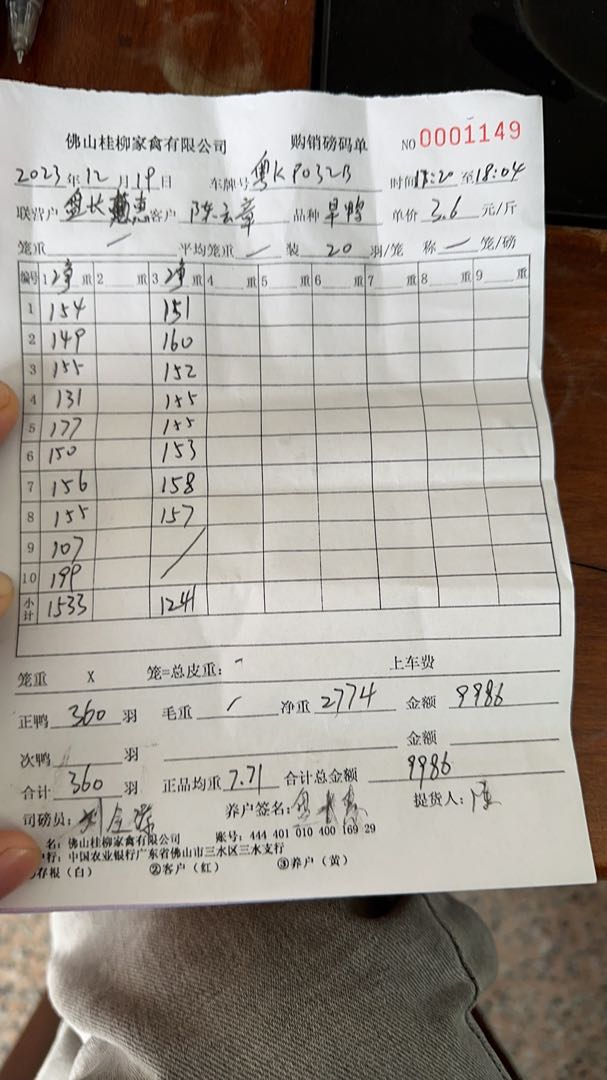 佛山桂柳家禽有限公司 购销磅码单 NO 0001149
2023年12月19日 车牌号 粤KP032B 时间 17:20 至 18:04
联营户 长惠 客户 陈云章 品种 旱鸭 单价 3.6 元/斤
笼重 / 平均笼重 / 装 20 羽/笼 称 / 笼/磅
编号 1 净重 2 重 3 净重 4 重 5 重 6 重 7 重 8 重 9 重
1 154 151
2 149 160
3 155 152
4 131 155
5 177 155
6 150 153
7 156 158
8 155 157
9 107
10 199
小计 1533 1241
笼重 X 笼=总皮重: - 上车费
正鸭 360 羽 毛重 / 净重 2774 金额 9986
次鸭 羽 金额
合计 360 羽 正品均重 7.71 合计总金额 9986
司磅员: 养户签名: 提货人: 陈
名: 佛山桂柳家禽有限公司 账号: 444 401 010 400 169 29
行: 中国农业银行广东省佛山市三水区三水支行
存根（白） ②客户（红） ③养户（黄）